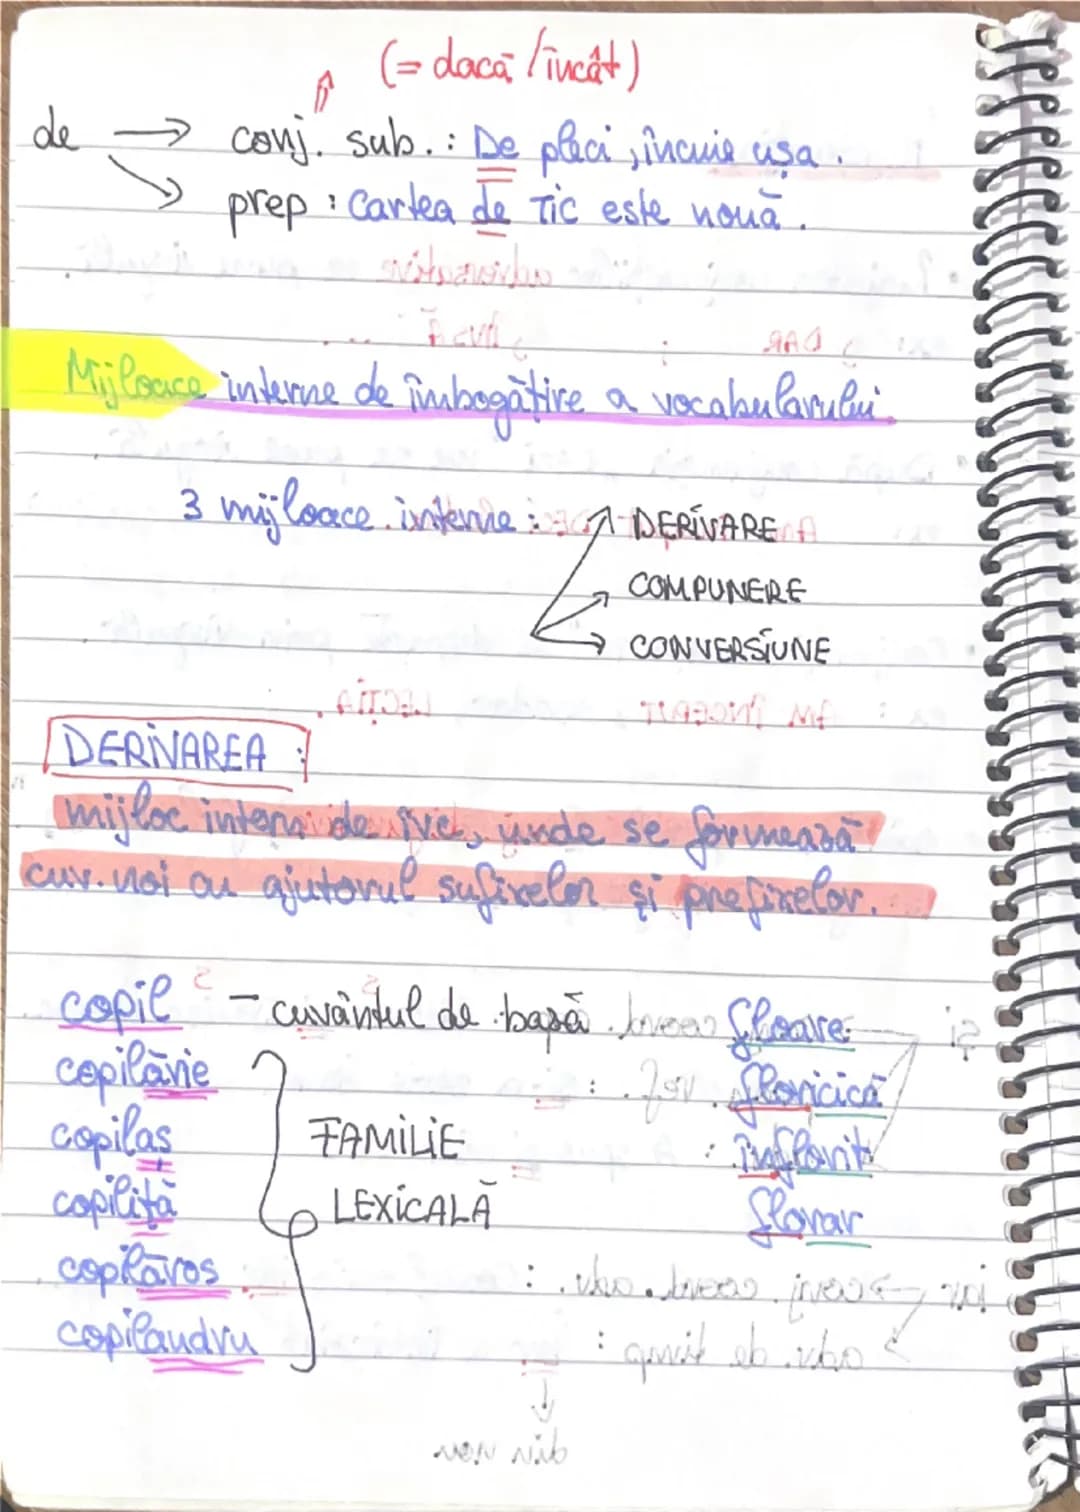 (= dacă / încât)
de → conj. sub. : De pleci, încuie ușa.
prep : Cartea de TIC este nouă.
Mijloace interne de îmbogățire a vocabularului
3 mijloace interne : DERIVARE
COMPUNERE
CONVERSIUNE
DERIVAREA :
mijloc intern de îvc, unde se formează
cuv. noi cu ajutorul sufixelor și prefixelor.
copil - cuvântul de bază floare
copilărie floricică
copilaș FAMILIE înflorit
copiliță LEXICALĂ florar
copilăros
copilandru